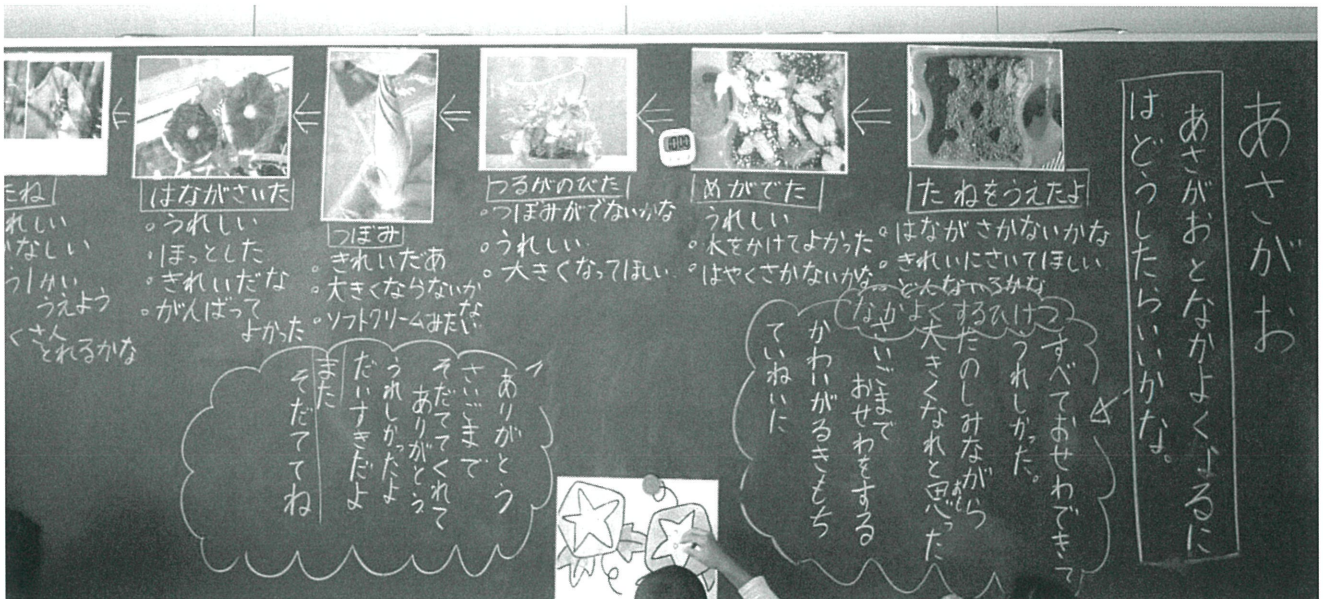 あさがお
あさがおとなかよくなるに
はどうしたらいいかな。
たねをうえたよ
・はながさかないかな
・きれいにさいてほしい
・どんないろかな
めがでた
うれしい
・水をかけてよかった
・はやくさかないかな
つるがのびた
・つぼみがでないかな
・うれしい
・大きくなってほしい
つぼみ
きれいだあ
・大きくならないかな
・ソフトクリームみたい
はながさいた
・うれしい
・ほっとした
・きれいだな
・がんばって
よかった
たね
れしい
なしい
うえよう
くさん
とれるかな
なかよくするひけつ
すべておせわできて
うれしかった。
たのしみながら
大きくなれと思った
おも
さいごまで
おせわをする
かわいがるきもち
ていねいに
ありがとう
さいごまで
そだててくれて
ありがとう
うれしかったよ
だいすきだよ
また
そだててね